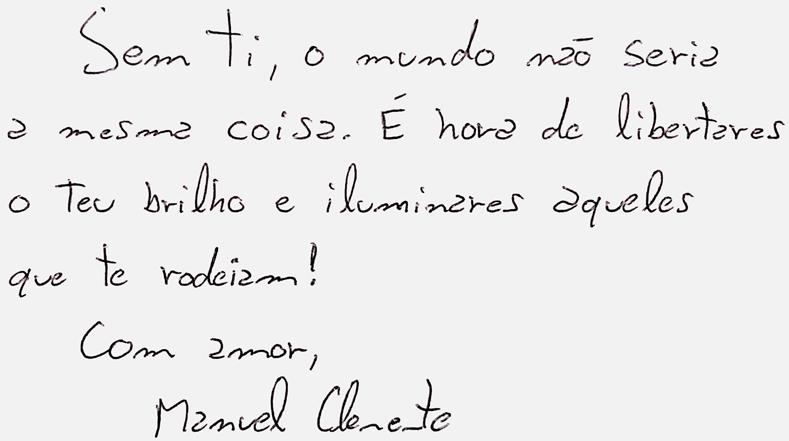 Sem ti, o mundo não seria
a mesma coisa. É hora de libertares
o teu brilho e iluminares aqueles
que te rodeiam!
Com amor,
Manuel Clemente